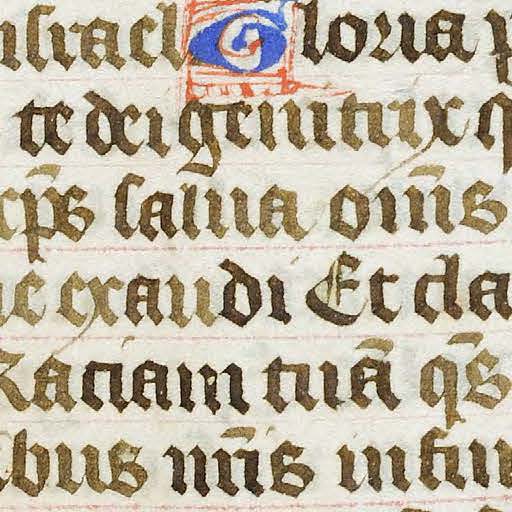 israel Gloria p
te dei genitrix q
xp̄s salua om̄s
ac exaudi Et cla
Raciam tuā qs̄
ibus nr̄is infun